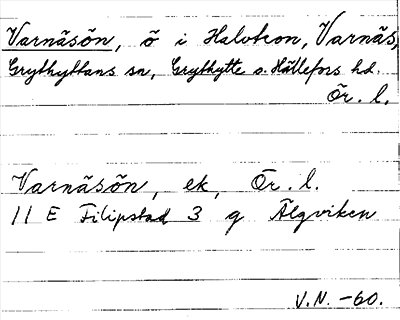 Varnäsön, ö i Halvtron, Varnäs,
Grythyttans sn, Grythytte o. Hällefors hd.
Ör. l.
Varnäsön, ek, Ör. l.
11 E Filipstad 3 g Älgviken
V.N. -60.